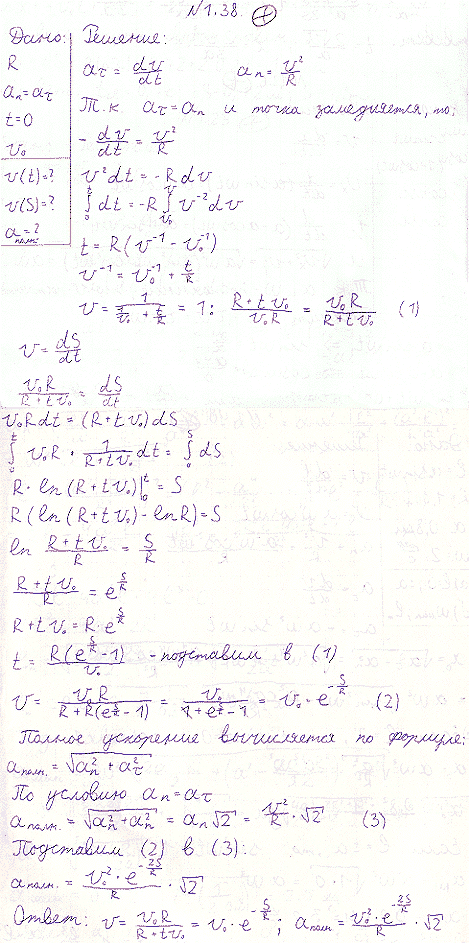 N 1.38. (+)
Дано: Решение:
R
aₙ=a_τ
t=0
v₀
v(t)=?
v(S)=?
a полн.=?
a_τ = dv/dt aₙ = v²/R
Т.к a_τ=aₙ и точка замедляется, то:
-dv/dt = v²/R
v²dt = -Rdv
∫₀ᵗ dt = -R ∫_{v₀}^{v} v⁻²dv
t = R(v⁻¹ - v₀⁻¹)
v⁻¹ = v₀⁻¹ + t/R
v = 1/(1/v₀ + t/R) = 1: (R+tv₀)/(v₀R) = v₀R/(R+tv₀) (1)
v = dS/dt
v₀R/(R+tv₀) = dS/dt
v₀Rdt = (R+tv₀)dS
∫₀ᵗ v₀R · 1/(R+tv₀) dt = ∫₀ˢ dS
R·ln(R+tv₀)|₀ᵗ = S
R(ln(R+tv₀) - lnR) = S
ln (R+tv₀)/R = S/R
(R+tv₀)/R = e^(S/R)
R+tv₀ = R·e^(S/R)
t = R(e^(S/R) -1)/v₀ - подставим в (1)
v = v₀R/(R+R(e^(S/R) -1)) = v₀/(1+e^(S/R) -1) = v₀·e^(-S/R) (2)
Полное ускорение вычисляется по формуле:
a полн. = √(aₙ² + a_τ²)
По условию aₙ = a_τ
a полн. = √(aₙ²+aₙ²) = aₙ√2 = v²/R · √2 (3)
Подставим (2) в (3):
a полн. = v₀²·e^(-2S/R)/R · √2
Ответ: v = v₀R/(R+tv₀) = v₀·e^(-S/R); a полн. = v₀²·e^(-2S/R)/R · √2